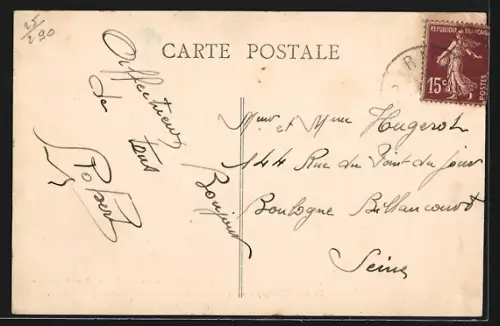 25
290
CARTE POSTALE
REPUBLIQUE FRANÇAISE
15c
POSTES
de
tous
Robert
Bonjour
et Mme Hugerot
144 Rue du Point du Jour
Boulogne Billancourt
Seine